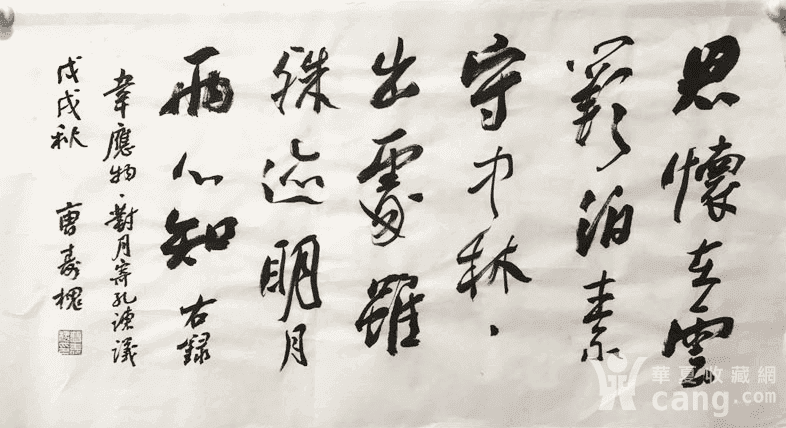 思懷在雲
闕泊素
守中林、
出處雖
殊迹明月
兩心知 右錄
韋應物·對月寄孔諫議
戊戌秋 唐壽槐
華夏收藏網
cang.com